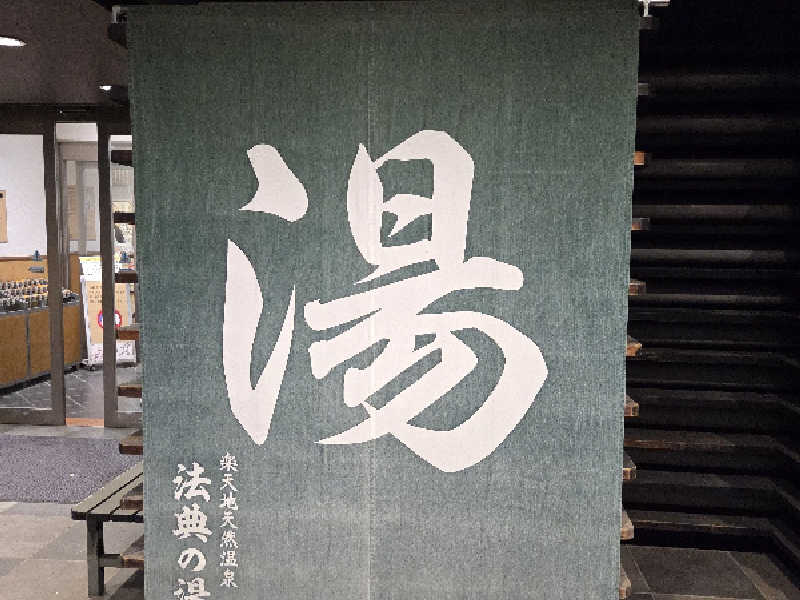 湯
楽天地天然温泉
法典の湯